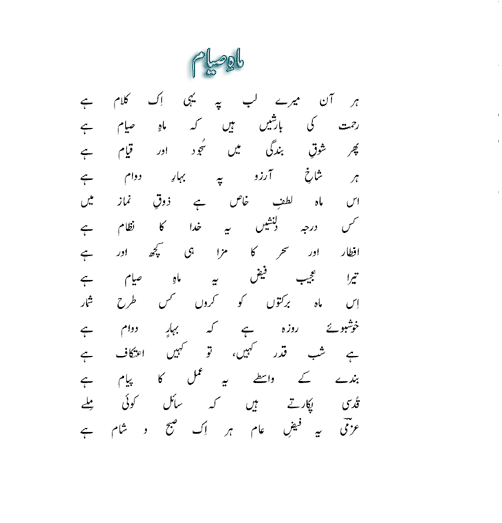 ماہِ صیام
ہر آن میرے لب پہ یہی اِک کلام ہے
رحمت کی بارشیں ہیں کہ ماہِ صیام ہے
پھر شوقِ بندگی میں سُجود اور قیام ہے
ہر شاخِ آرزو پہ بہارِ دوام ہے
اس ماہ لطفِ خاص ہے ذوقِ نماز میں
کس درجہ دلنشیں یہ خدا کا نظام ہے
افطار اور سحر کا مزا ہی کچھ اور ہے
تیرا عجیب فیض یہ ماہِ صیام ہے
اِس ماہ برکتوں کو کروں کس طرح شمار
خوشبوئے روزہ ہے کہ بہارِ دوام ہے
ہے شب قدر کہیں، تو کہیں اعتکاف ہے
بندے کے واسطے یہ عمل کا پیام ہے
قُدسی پکارتے ہیں کہ سائل کوئی مِلے
عزمیؔ یہ فیضِ عام ہر اِک صبح و شام ہے